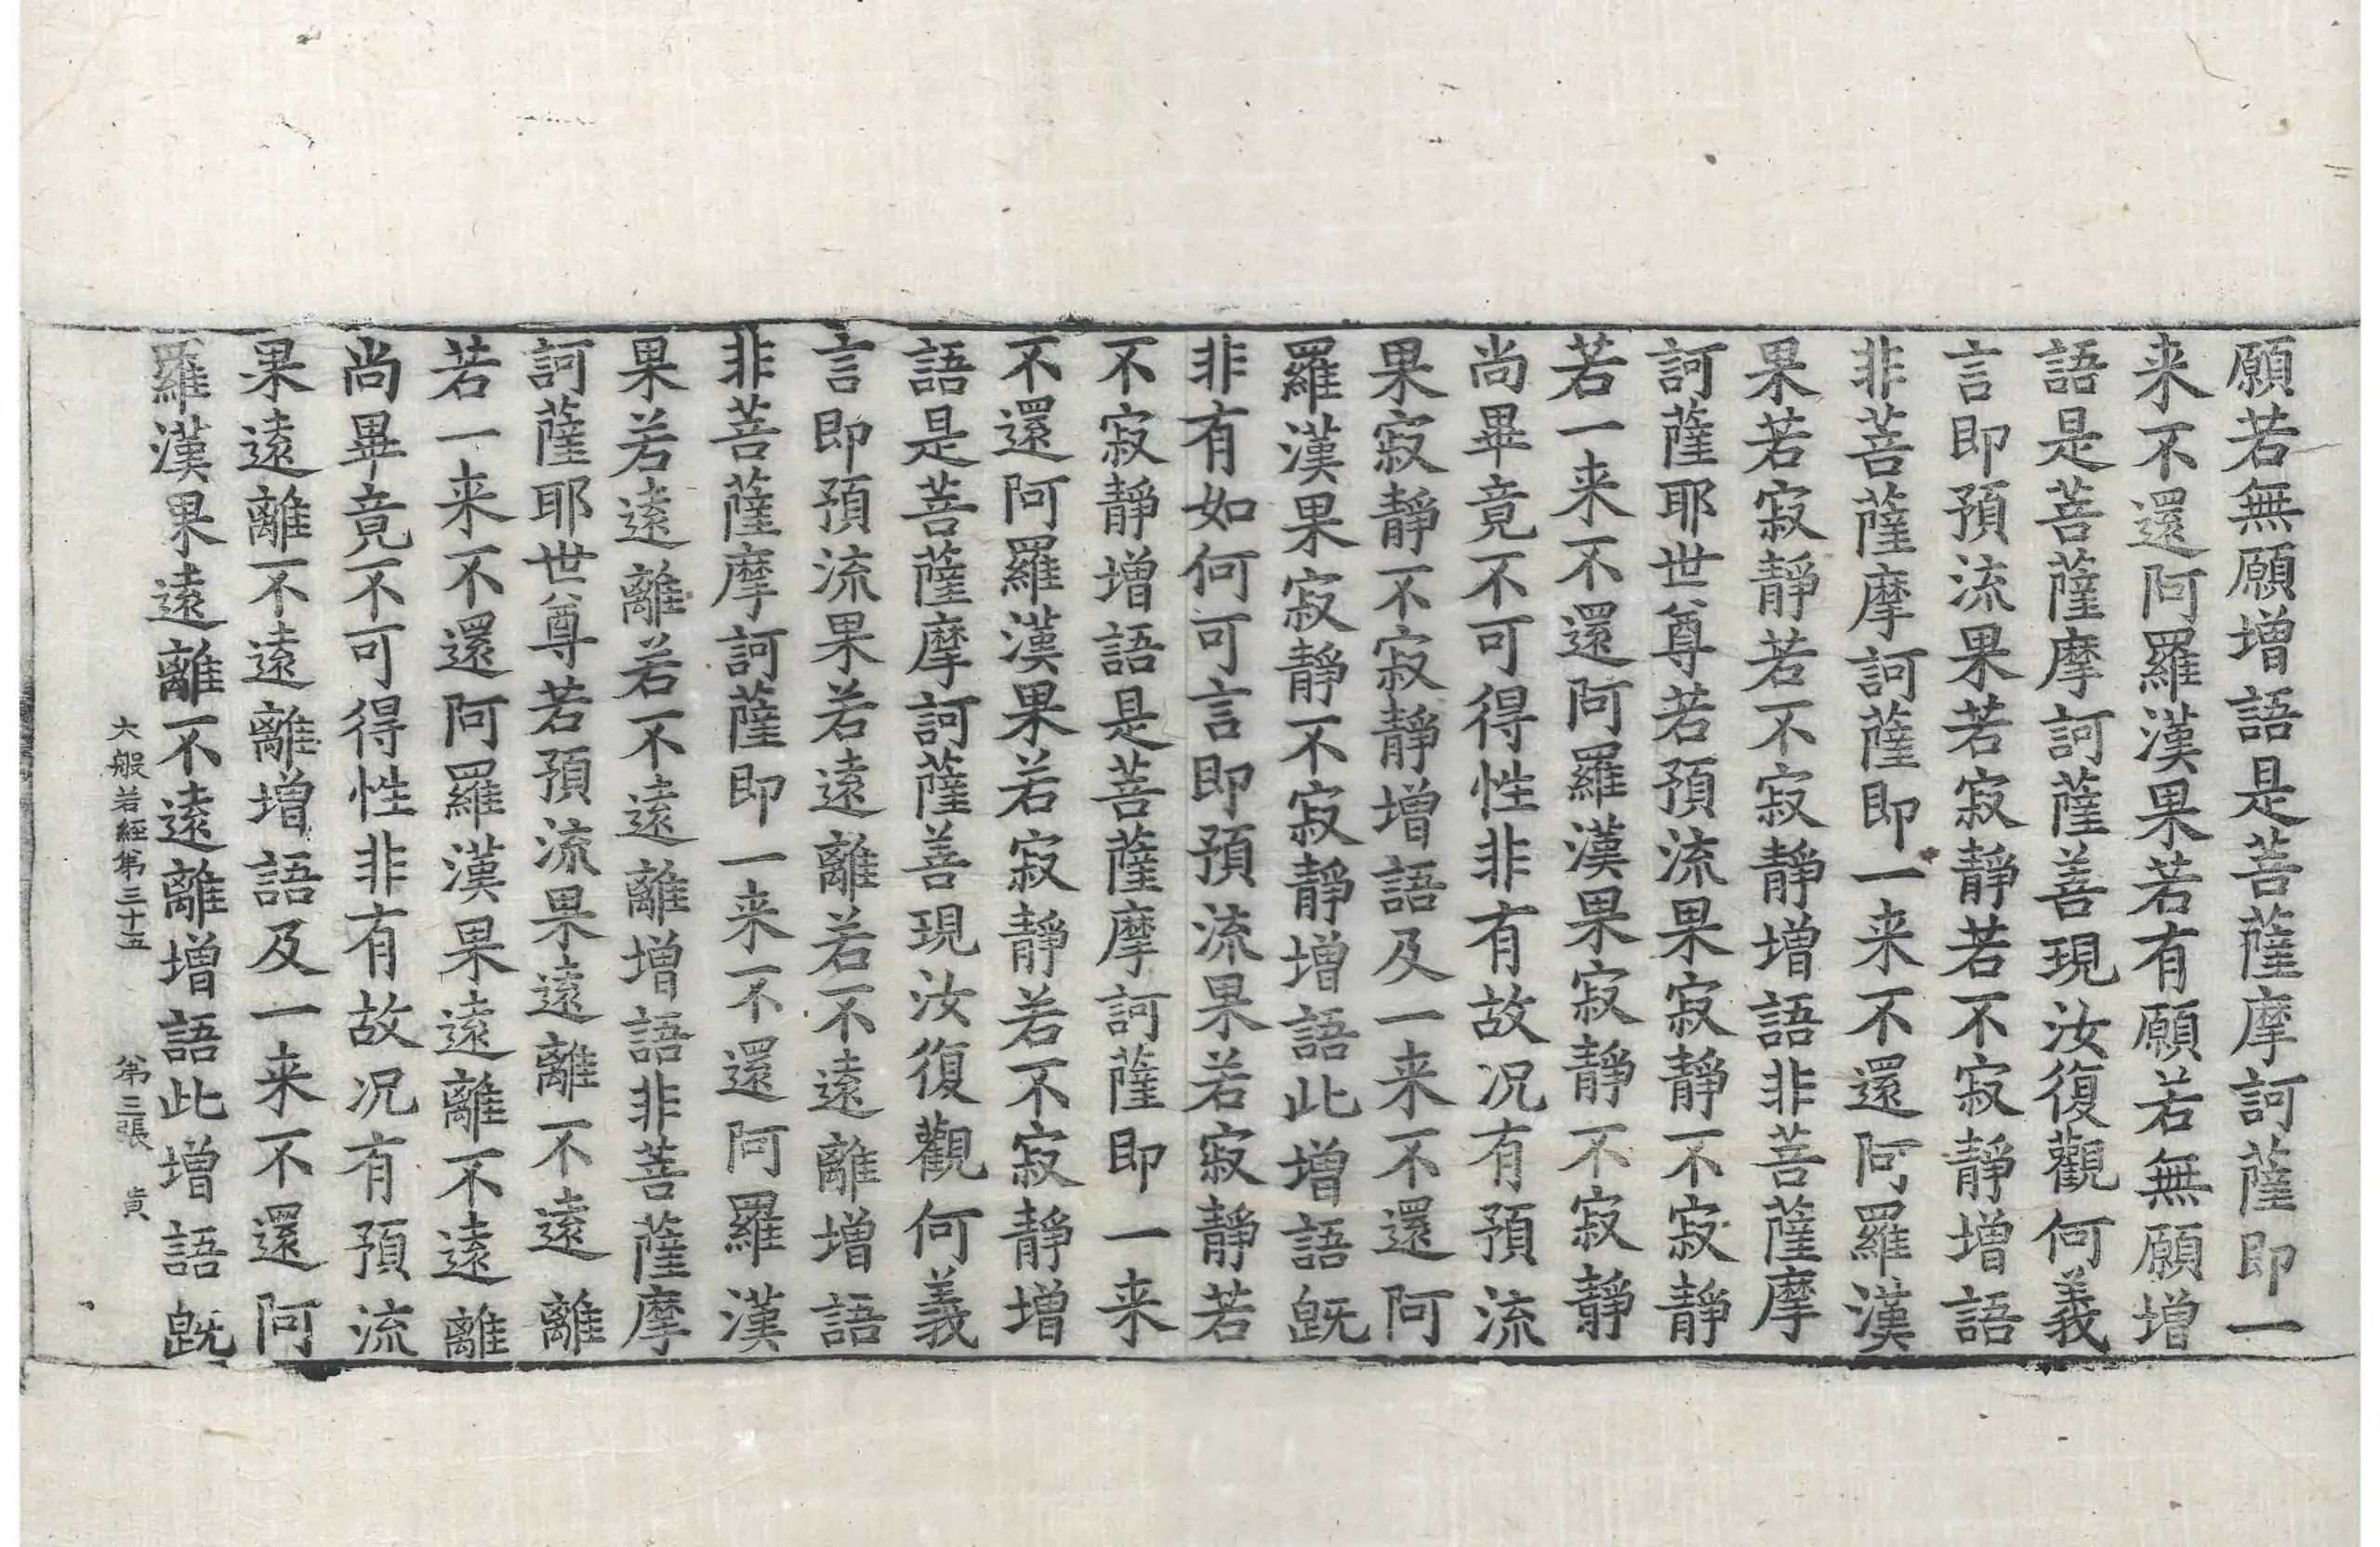 願若無願增語是菩薩摩訶薩即一
来不還阿羅漢果若有願若無願增
語是菩薩摩訶薩善現汝復觀何義
言即預流果若寂靜若不寂靜增語
非菩薩摩訶薩即一来不還阿羅漢
果若寂靜若不寂靜增語非菩薩摩
訶薩耶世尊若預流果寂靜不寂靜
若一来不還阿羅漢果寂靜不寂靜
尚畢竟不可得性非有故况有預流
果寂靜不寂靜增語及一来不還阿
羅漢果寂靜不寂靜增語此增語旣
非有如何可言即預流果若寂靜若
不寂靜增語是菩薩摩訶薩即一来
不還阿羅漢果若寂靜若不寂靜增
語是菩薩摩訶薩善現汝復觀何義
言即預流果若遠離若不遠離增語
非菩薩摩訶薩即一来不還阿羅漢
果若遠離若不遠離增語非菩薩摩
訶薩耶世尊若預流果遠離不遠離
若一来不還阿羅漢果遠離不遠離
尚畢竟不可得性非有故况有預流
果遠離不遠離增語及一来不還阿
羅漢果遠離不遠離增語此增語旣
大般若經第三十五 第三張